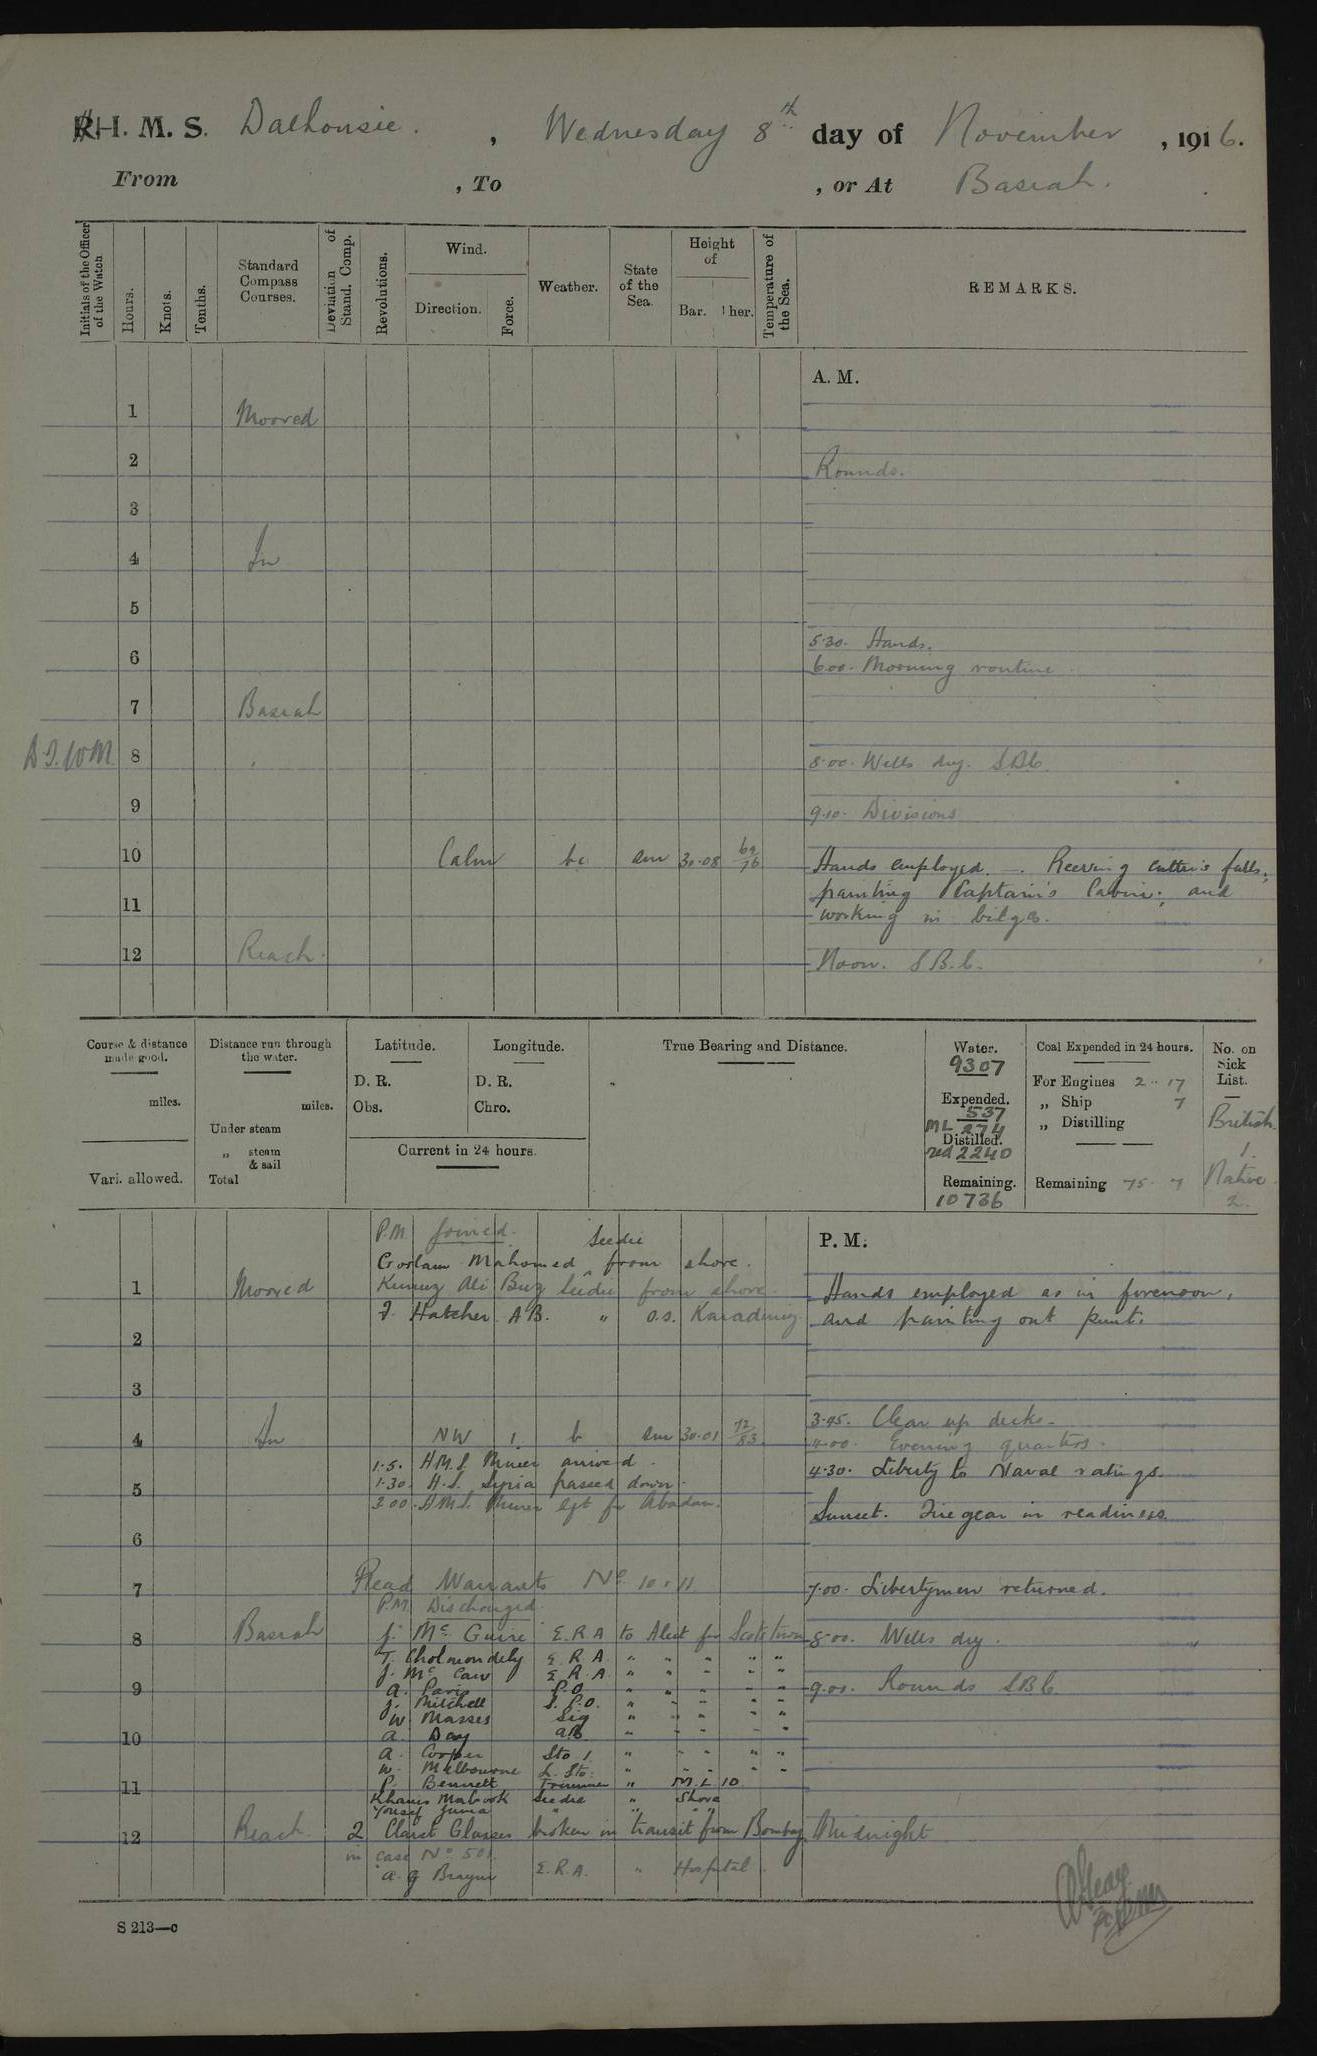 R. I. M. S. Dalhousie. , Wednesday 8th day of November , 1916.
From , To , or At Basrah.
Initials of the Officer of the Watch
Hours.
Knots.
Tenths.
Standard Compass Courses.
Deviation of Stand. Comp.
Revolutions.
Wind.
Direction.
Force.
Weather.
State of the Sea.
Height of
Bar. Ther.
Temperature of the Sea.
REMARKS.
A. M.
1 Moored
2 Rounds.
3
4 In
5
5.30. Hands.
6 6.00. Morning routine
7 Basrah
8 8.00. Wells dry. SBC.
9 9.10. Divisions
10 Calm bc sm 30.08 69/76 Hands employed. Reeving cutter's falls;
painting Captain's Cabin; and
11 working in bilges.
12 Reach. Noon. S.B.C.
Course & distance made good.
miles.
Vari. allowed.
Distance run through the water.
miles.
Under steam
„ steam & sail
Total
Latitude.
D. R.
Obs.
Longitude.
D. R.
Chro.
Current in 24 hours.
True Bearing and Distance.
Water.
9307
Expended.
537
ML 274
Distilled.
red 2240
Remaining.
10736
Coal Expended in 24 hours.
For Engines 2 .. 17
„ Ship 7
„ Distilling
Remaining 75. 7
No. on Sick List.
British.
1.
Native.
2.
P.M. Joined.
P. M.
Goolam Mahomed Seedie from shore.
1 Moored Ali Buz Seedie from shore. Hands employed as in forenoon,
Hatcher A.B. " O.S. Karadeniz and painting out punt.
2
3
3.45. Clear up decks.
4 In NW 1. b sm 30.01 72/83 4.00. Evening quarters.
1.5. H.M.S. Miner arrived. 4.30. Liberty to Naval ratings.
5 1.30. H.S. Syria passed down.
3.00. H.M.S. Miner left for Abadan. Sunset. Fire gear in readiness.
6
7 Read Warrants No 10 & 11 7.00. Libertymen returned.
P.M. Discharged
8 Basrah J. McGuire E.R.A to Alert for Scotstoun 8.00. Wells dry.
T. Cholmondely E.R.A " " " " "
J. McCaw E.R.A " " " " "
9 A. Paris P.O. " " " " " 9.00. Rounds SBC.
J. Mitchell S.P.O. " " " " "
W. Masses Sig " " " " "
10 A. Day AB " " " " "
A. Cooper Sto 1. " " " " "
W. Melbourne L. Sto. " " " " "
11 P. Bennett Trimmer " M.L. 10
Khamis Mabrook Seedie " Shore
Yousef Juma " " "
12 Reach. 2 Claret Glasses broken in transit from Bombay Midnight
in case No 501.
A. G. E.R.A. " Hospital.
S 213—c